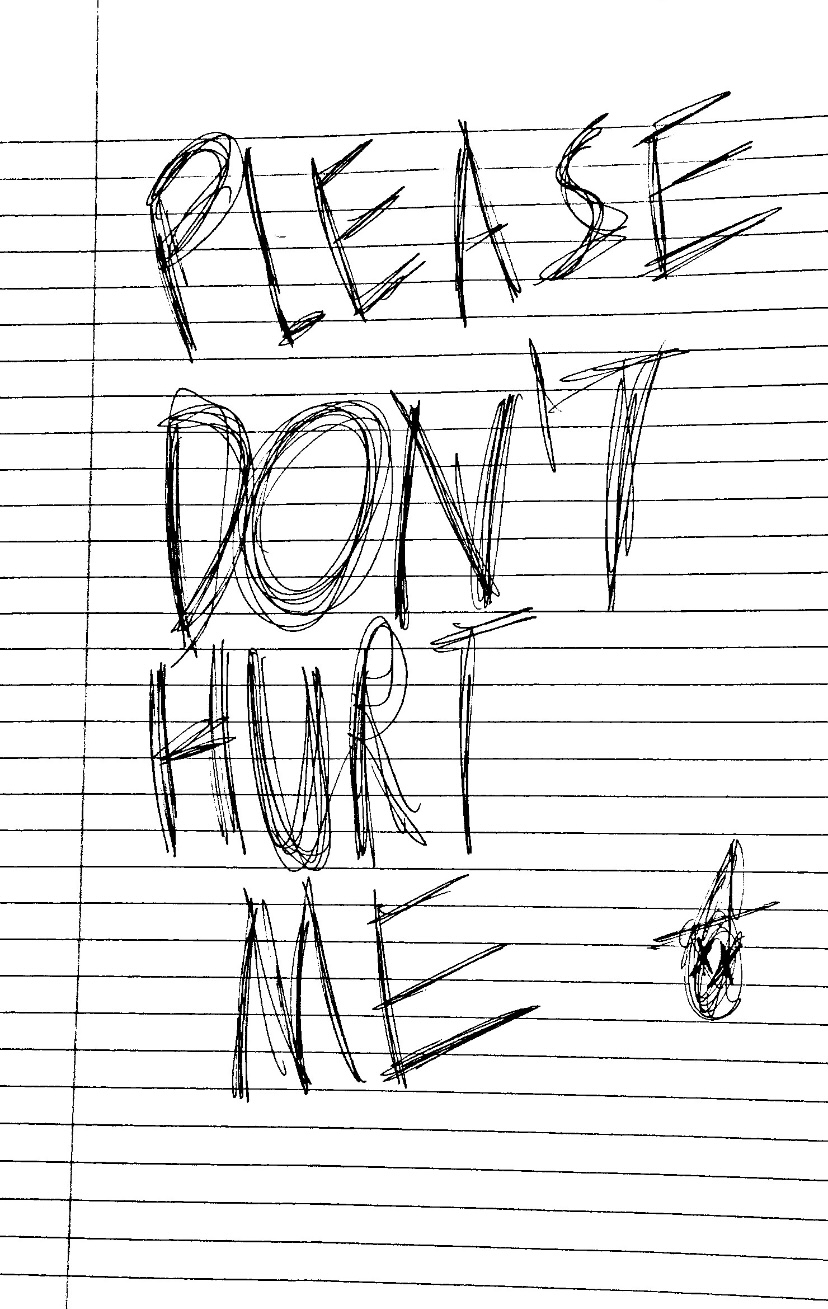 PLEASE
DON'T
HURT
ME